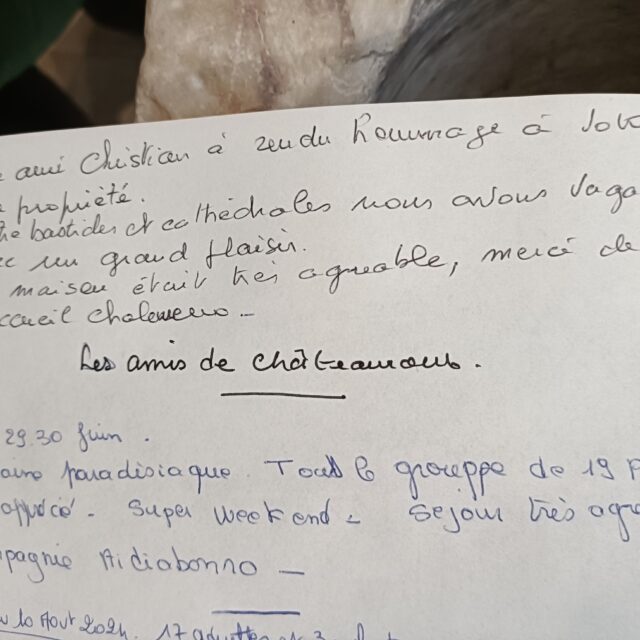 ami Christian à rendu hommage à
propriété.
bastides et cathédrales nous avons
un grand plaisir.
maison était très agréable, merci de
ccueil chaleureux -
Les amis de châteamous.
29.30 Juin.
paradisiaque. Tout le grouppe de 19
apprécié. Super weekend - Sejour très agré
mpagnie Aidiabonno -
10 Aout 2024. 17